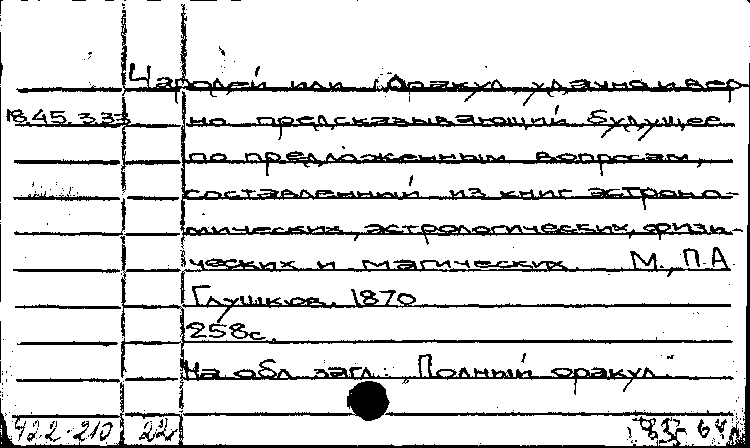 Чародей или Оракул, удачно и вер-
18.45.3.33 но предсказывающий будущее
по предложенным вопросам,
составленный из книг астроно-
мических, астрологических, физи-
ческих и магических. М., П.А
Глушков, 1870.
258с.
На обл. загл.: "Полный оракул".
422-210 22